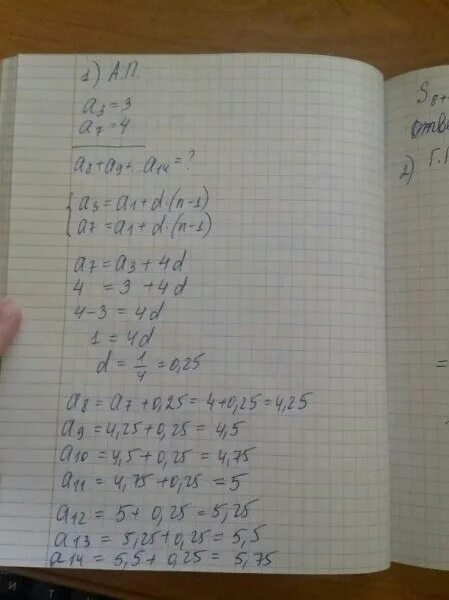 1) А.П.
a₃ = 3
a₇ = 4
a₈ + a₉ + ... a₁₄ = ?
{ a₃ = a₁ + d·(n-1)
a₇ = a₁ + d·(n-1)
a₇ = a₃ + 4d
4 = 3 + 4d
4-3 = 4d
1 = 4d
d = 1/4 = 0,25
a₈ = a₇ + 0,25 = 4+0,25 = 4,25
a₉ = 4,25+0,25 = 4,5
a₁₀ = 4,5 + 0,25 = 4,75
a₁₁ = 4,75 + 0,25 = 5
a₁₂ = 5 + 0,25 = 5,25
a₁₃ = 5,25+0,25 = 5,5
a₁₄ = 5,5 + 0,25 = 5,75
S₈₊
отв
2) Г.
=